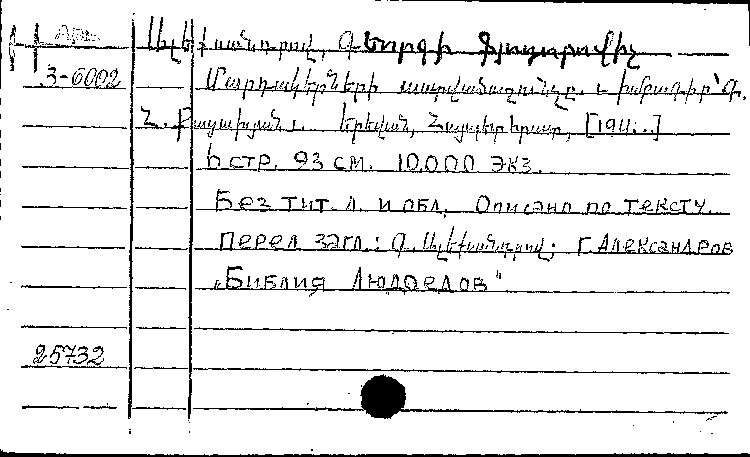 Ալեքսանդրով, Գեորգի Ֆյոդորովիչ
3-6002 Մարդակերների աստվածաշունչը. Խմբագիր՝ Գ.
Երևան, Հայպետհրատ, [194...]
6 стр. 93 см. 10.000 экз.
Без тит. л. и обл. Описано по тексту.
Перел загл.: Գ. Ալեքսանդրով; Г. Александров
"Библия Людоедов"
25732